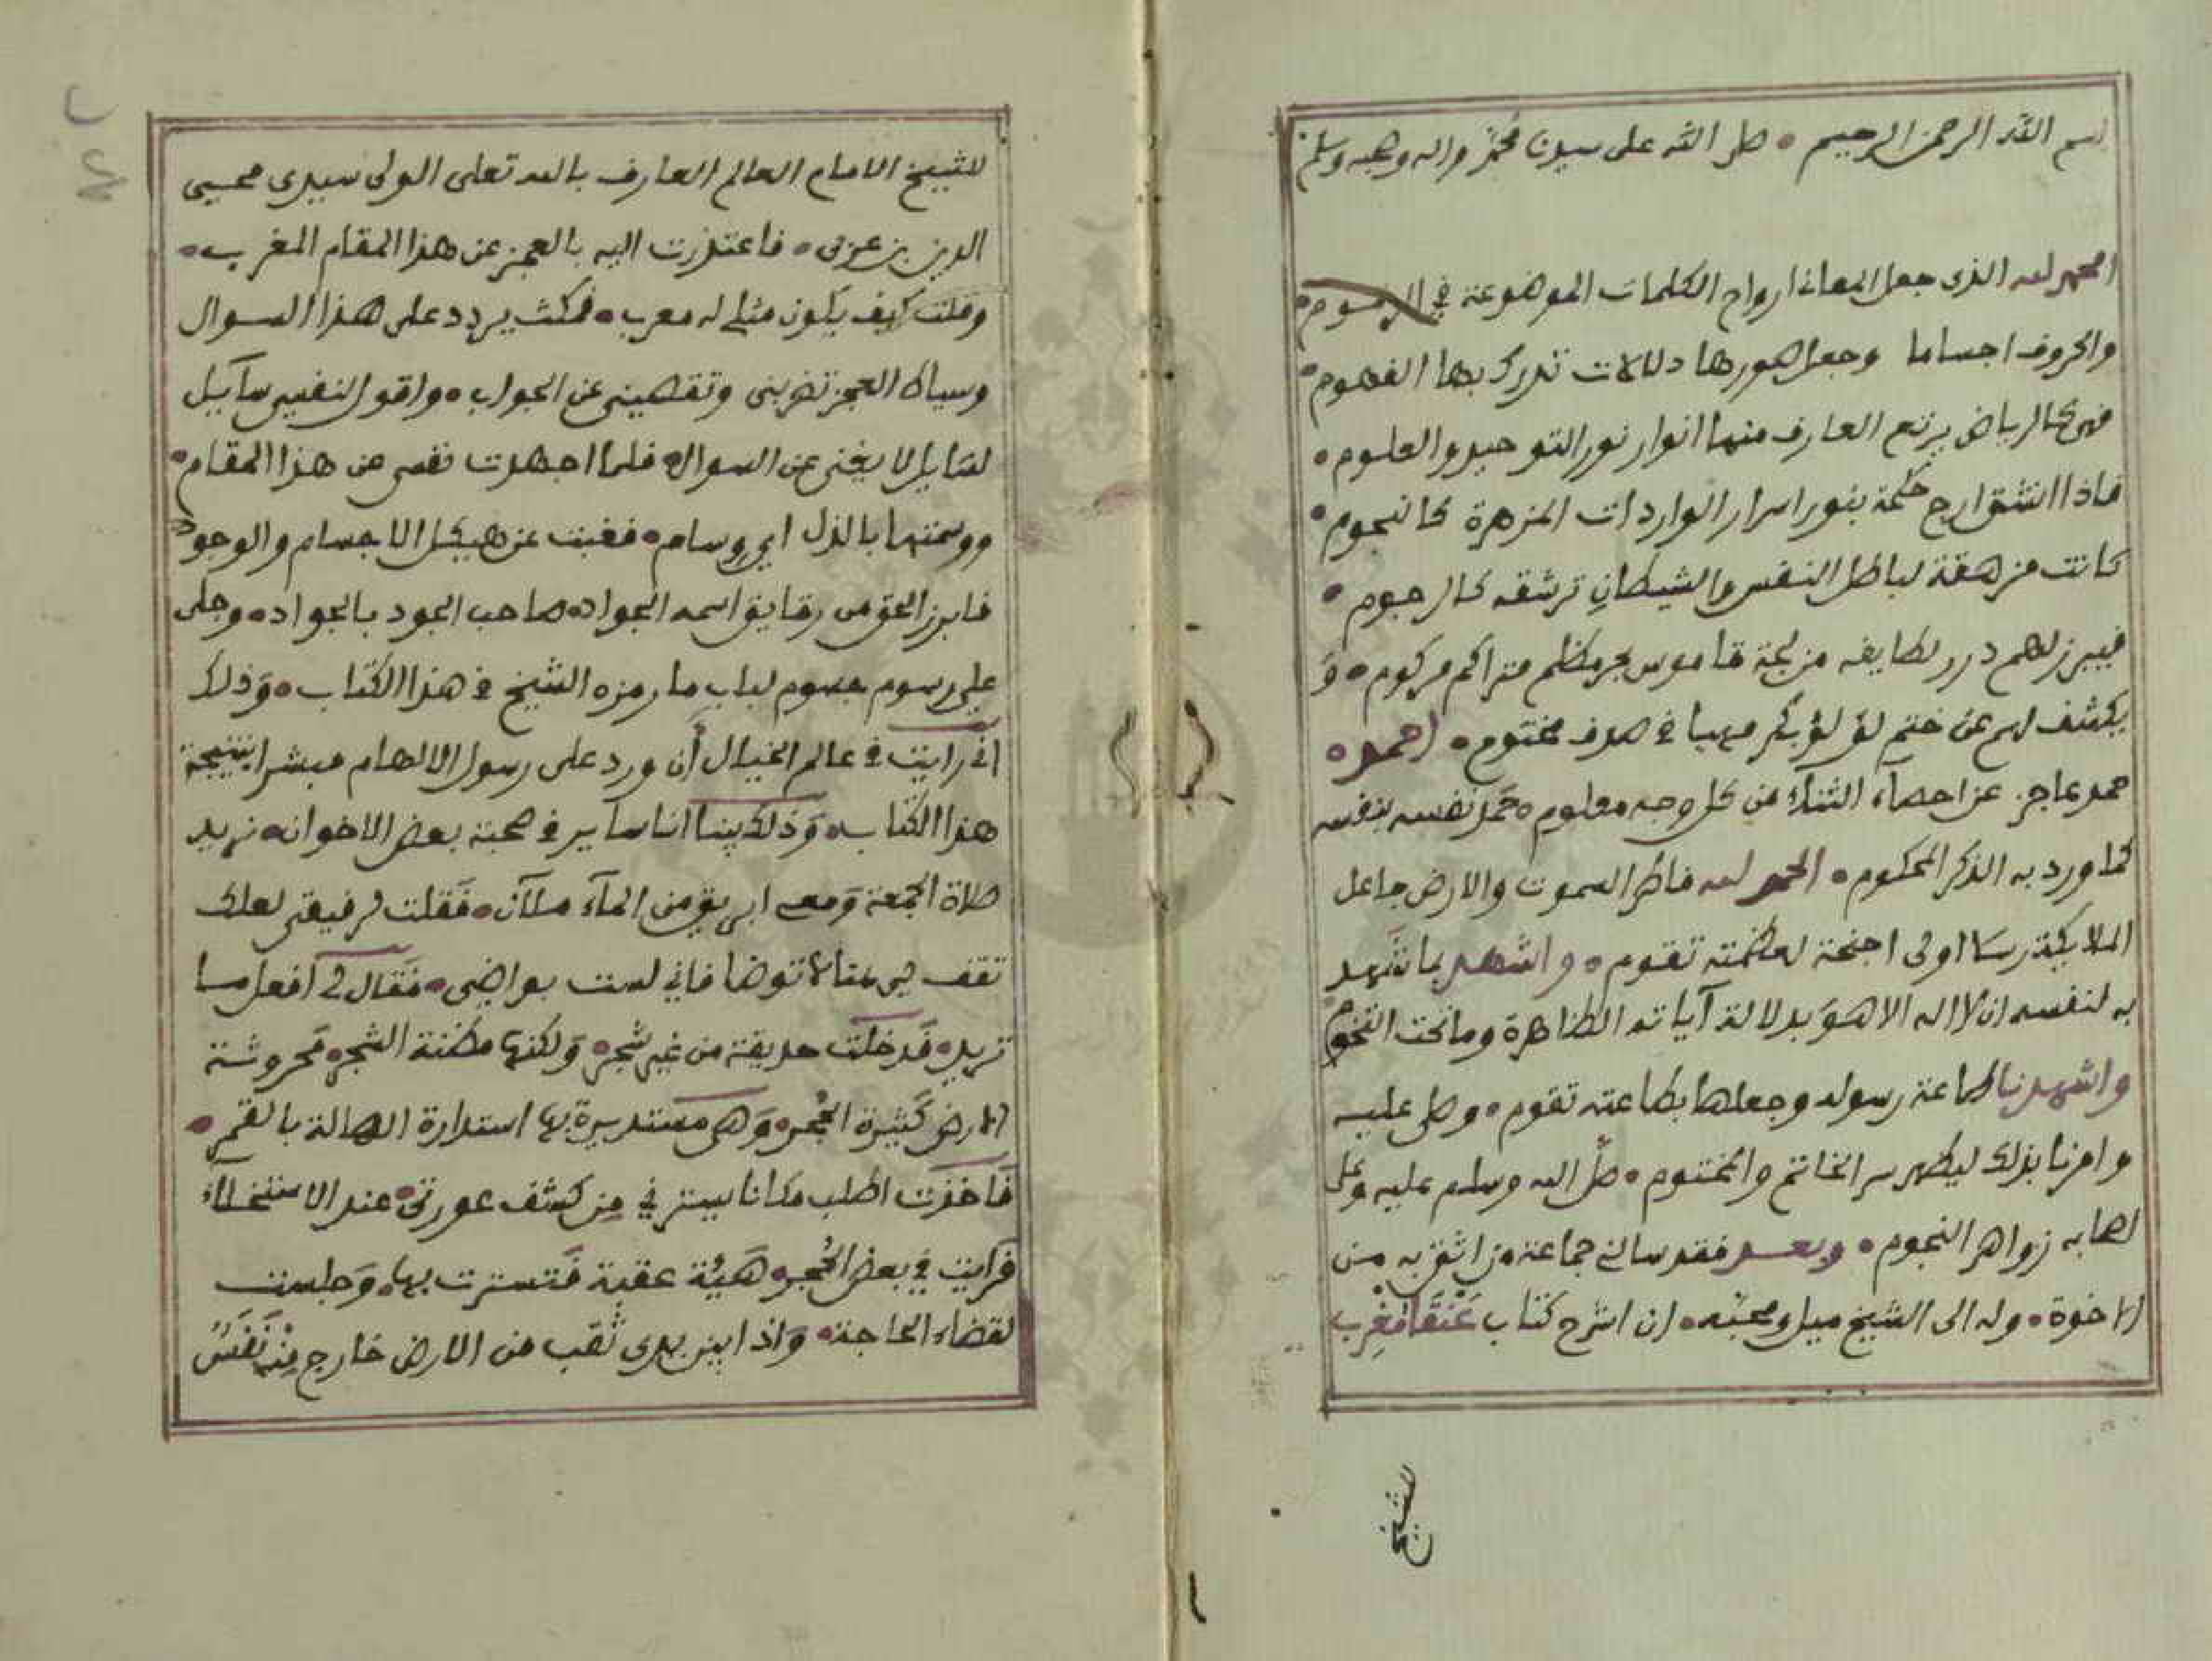 بسم الله الرحمن الرحيم • صل الله على سيدنا محمد واله وصحبه وسلم
الحمد لله الذى جعل المعانى ارواح الكلمات الموضوعة في الرسوم •
والحروف اجساما وجعل صورها دلالات تدرك بها الفهوم •
فهى كالرياض يرتع العارف منها انوار نور التوحيد والعلوم •
فاذا انشق ارج حكمة بنور اسرار الواردات المزهرة كالنجوم •
كانت مزهقة لباطل النفس والشيطان ترشقه كالرجوم •
فيبرز لهم درر لطايفه من لجة قاموس بحر مطلم متراكم مركوم • و
يكشف لهم عن ختم لؤلؤ بكر مهيا في صدف مختوم • احمده •
حمد عاجز عن احصآء الثناء من كل وجه معلوم • حمد نفسه بنفسه
كما ورد به الذكر المحكوم • الحمد لله فاطر السموت والارض جاعل
الملايكة رسلا اولى اجنحة لعظمته تقوم • واشهد بما شهد
به لنفسه ان لا اله الا هو بدلالة آياته الظاهرة وما تحت التخوم
واشهدنا طاعة رسوله وجعلها بطاعته تقوم • وصلى عليه
وامرنا بذلك ليظهر سر الخاتم والمختوم • صل الله وسلم عليه وعلى
اصحابه زواهر النجوم • وبعد فقد سالنى جماعة من اثق به من
الاخوة • وله الى الشيخ ميل ومحبة • ان اشرح كتاب عنقا مغرب
للشيخ
للشيخ الامام العالم العارف بالله تعلى الولى سيدى محيى
الدين بن عربى • فاعتذرت اليه بالعجز عن هذا المقام المغرب •
وقلت كيف يكون مثلى له معرب • فمكث يردد على هذا السوال
وسياط العجز تضربنى وتقصينى عن الجواب • واقول لنفسى سآيل
لسايل لا يغنى عن السوال • فلما اجهدت نفسى من هذا المقام •
ووسمتها بالذل اي وسام • فغبت عن هيكل الاجسام والوجود •
فابرز الحق من رقايق اسمه الجواد • صاحب الجود بالجواد • وجلى
على رسوم جسوم لباب ما رمزه الشيخ في هذا الكتاب • وذلك
انى رايت في عالم الخيال أن ورد على رسول الالهام مبشرا بنتيجة
هذا الكتاب • وذلك بينا انا ساير في صحبة بعض الاخوان • نريد
صلاة الجمعة ومعى ابريق من المآء ملآن • فقلت لرفيقى لعلك
تقف لى هنا لاتوضا فاني لست بواضى • فقال لى افعل ما
تريد • فدخلت حديقة من غير شجر • ولكنها مظنة الشجر • محروشة
الارض كثيرة الحجر • وهى مستديرة بها استدارة الهالة بالقمر •
فاخذت اطلب مكانا يسترني من كشف عورتى • عند الاستنجآء
فرايت في بعض الحجر • هيئة عقبة فتسترت بها • وجلست
لقضاء الحاجة • واذا بين يدى ثقب من الارض خارج منه نفس